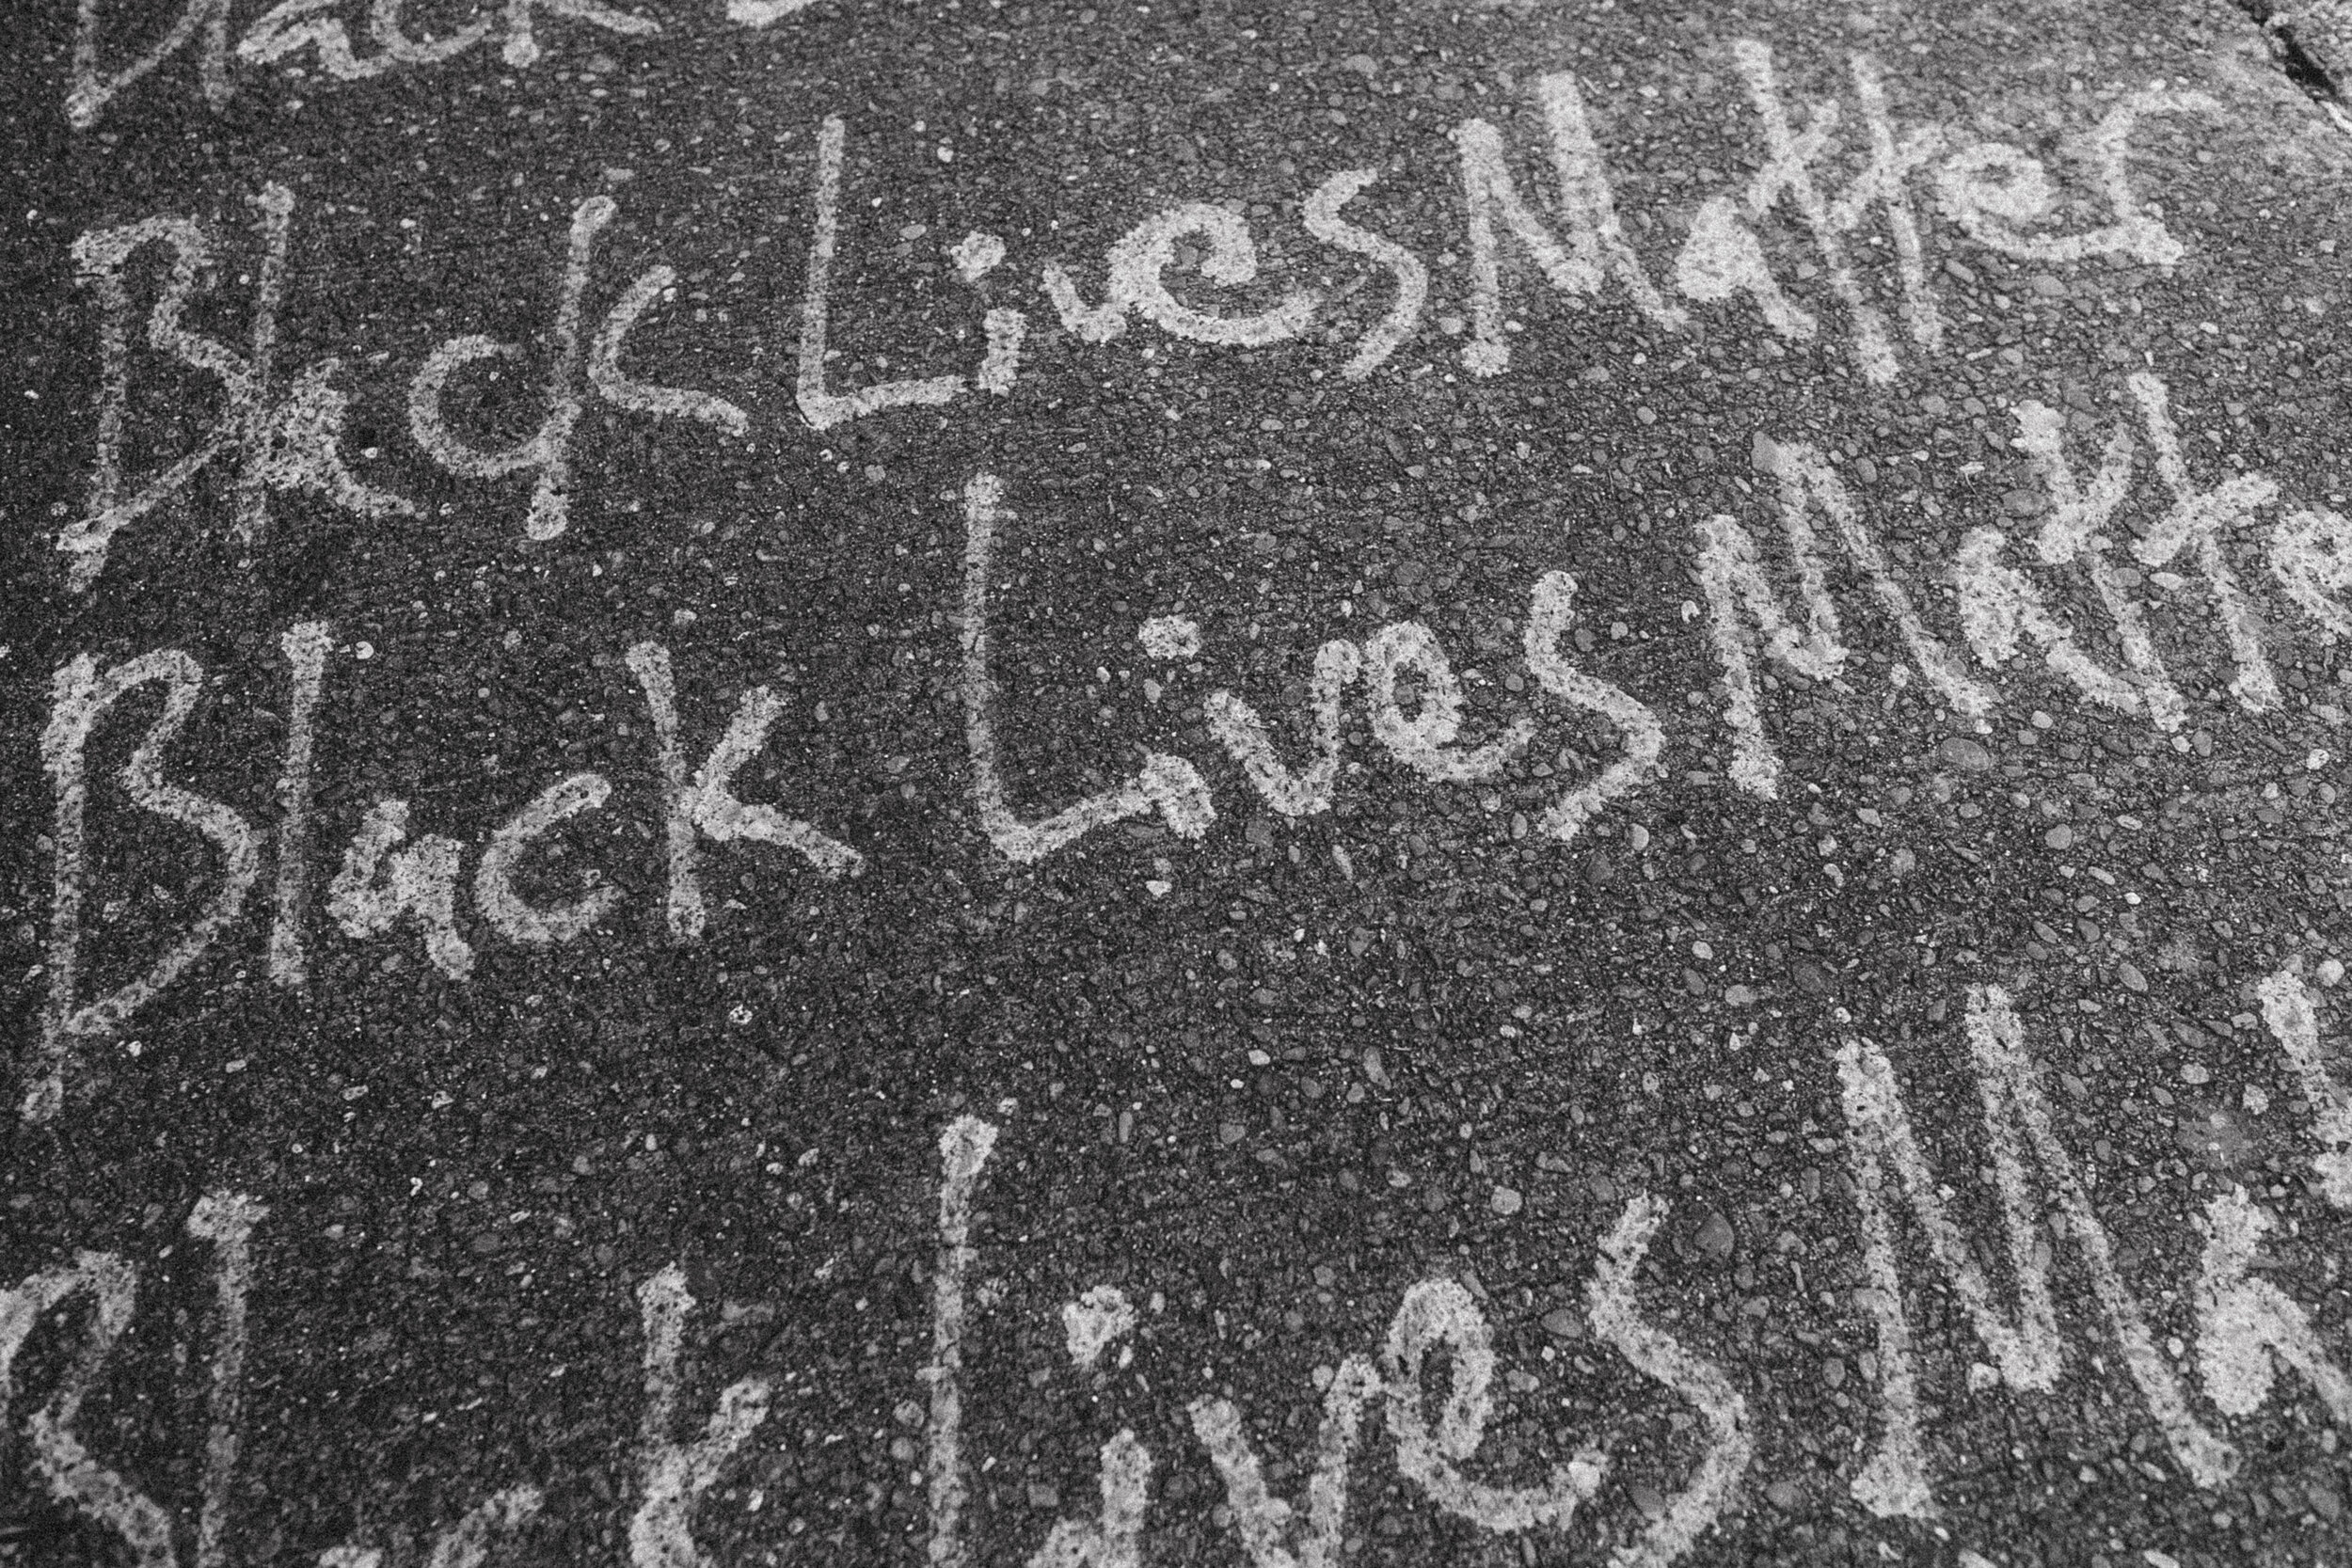 Black
Black Lives Matter
Black Lives Matte
Black Lives Ma